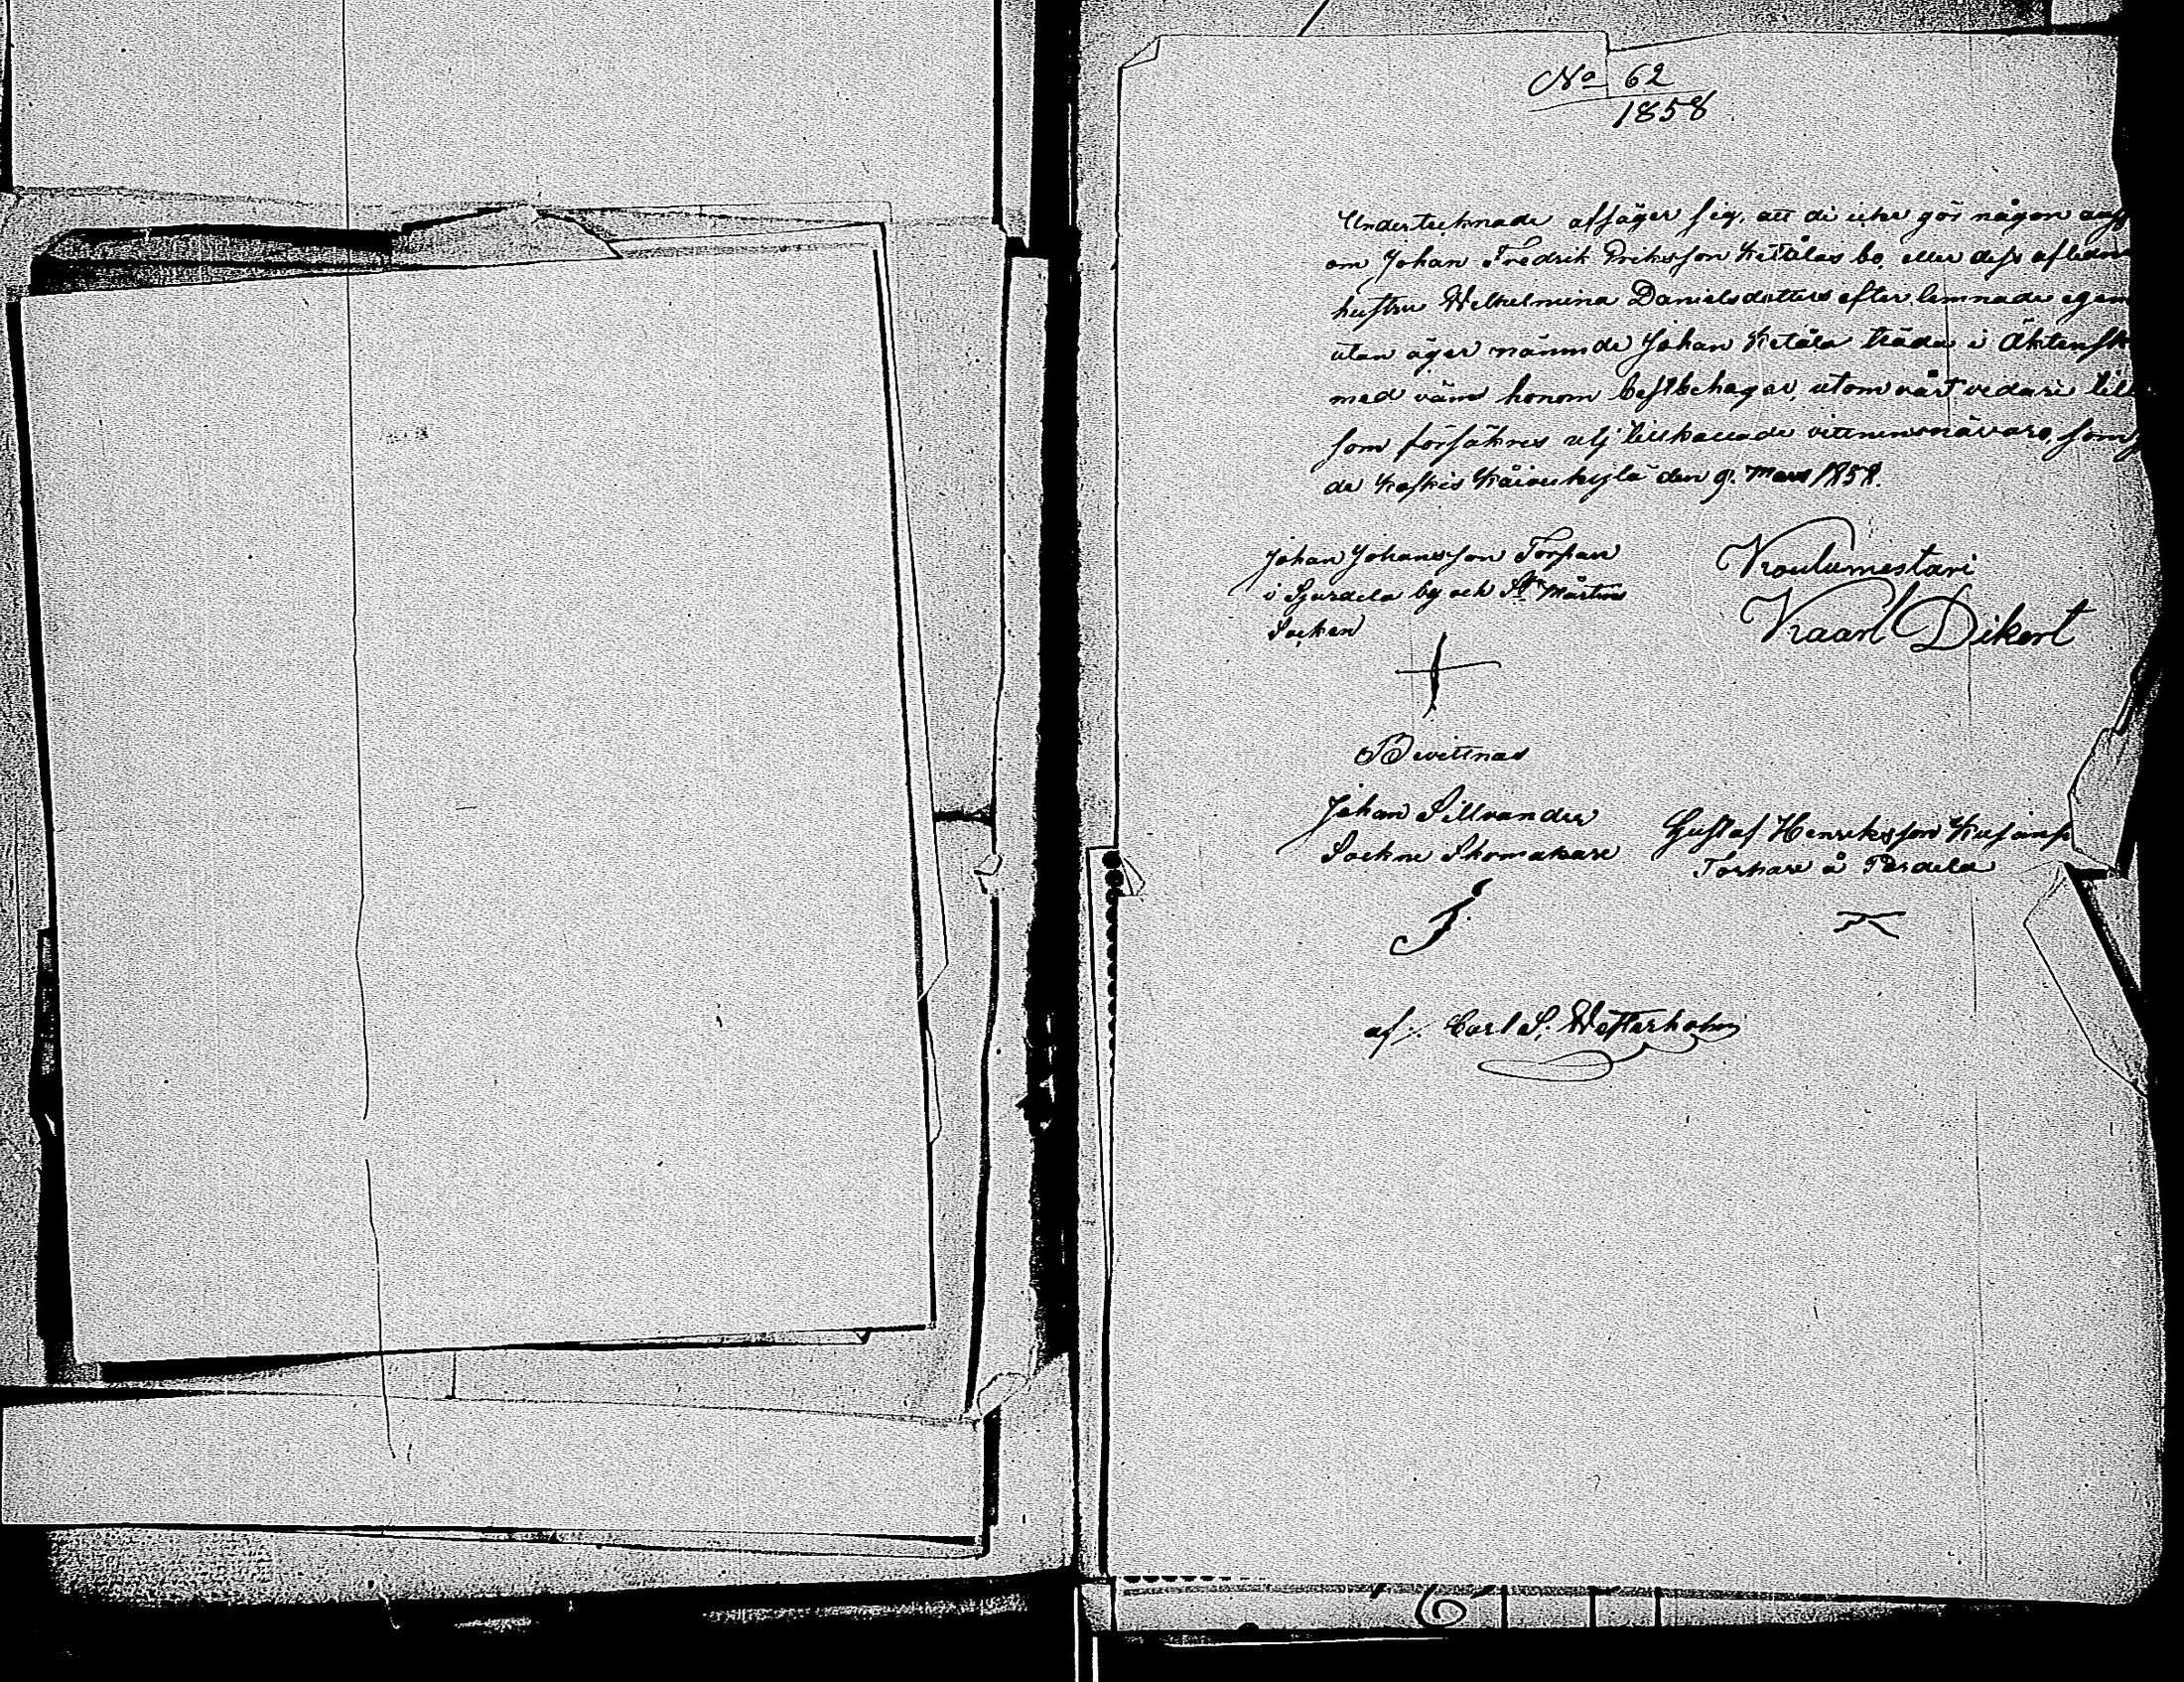 No 62
1858
Undertecknade afsäger sig, att di icke gör någon
om Johan Fredrik Eriksson Ketålas bo, eller dess
hustru Wilhelmina Danielsdotters efter lemnade
utan äger nämnde Johan Ketåla träda i
med väm honom bäst behagar, utom vårt vedare
som försäkres utj tillkallade vittnens närvaro,
de Koskis den 9. Mars 1858.
Johan Johansson Torpare
i by och St Mårtens
Socken
Koulumestari
Kaarl Dikert
Bevittnas
Johan Sillvander
Sockne Skomakare
Gustaf Henriksson
Torpare å Pärdela
af: Carl S. Wetterholm